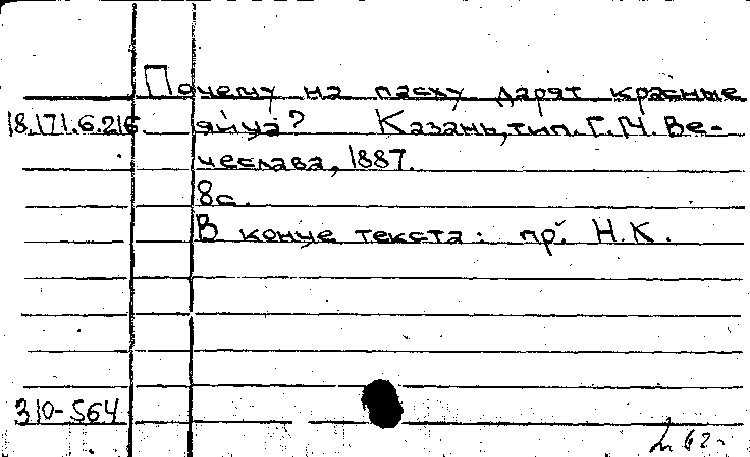 Почему на пасху дарят красные
18.171.6.216 яйца? Казань, тип. Г.М. Ве-
чеслава, 1887.
8с.
В конце текста: пр. Н.К.
310-564